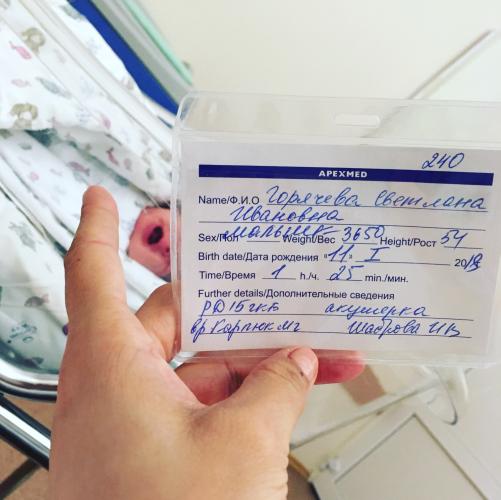 240
APEXMED
Name/Ф.И.О Горячева Светлана
Ивановна
Sex/Пол мальчик Weight/Вес 3650 Height/Рост 54
Birth date/Дата рождения «11» I 2018
Time/Время 1 h./ч. 25 min./мин.
Further details/Дополнительные сведения
РД 15 ГКБ акушерка
вр Карпюк МГ Шаврова ИВ